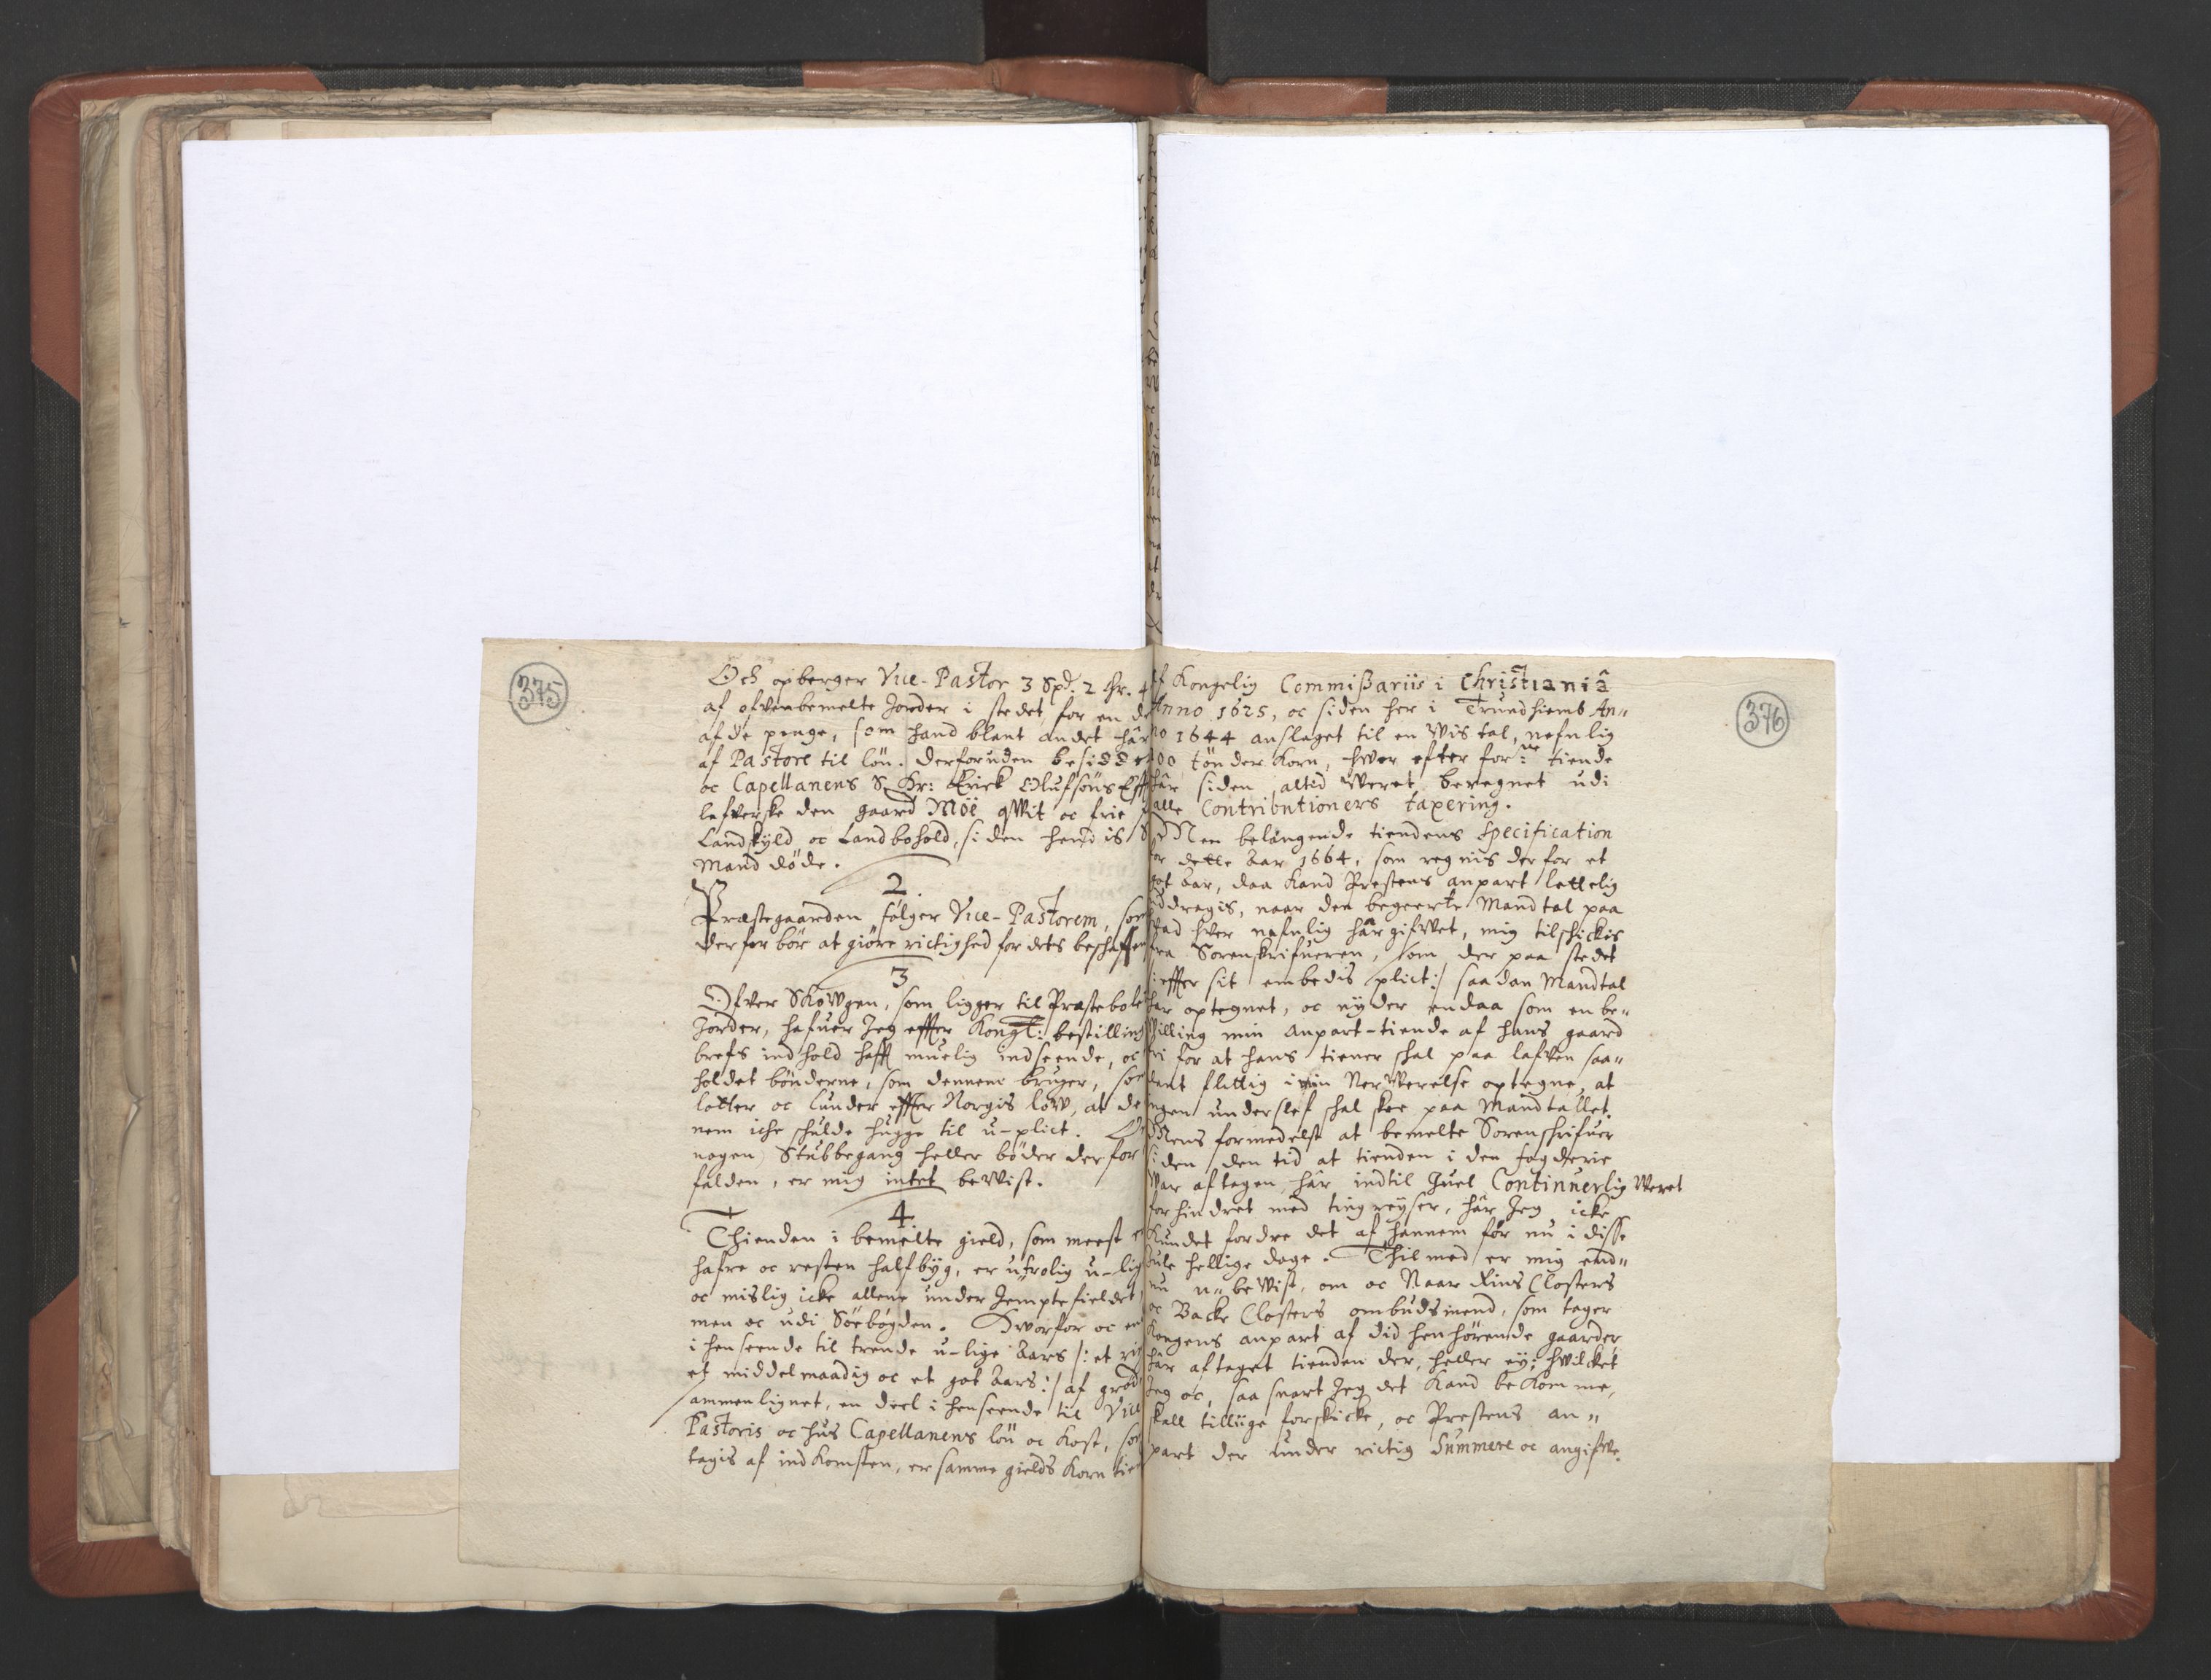 375
Och opberger Vice-Pastor 3 Spd. 2 Ør. 4
af ofvenbemelte Jorder i stedet for en de
af de penge, som hand blant andet hâr
af Pastore til lön. derforuden besidder
oc Capellanens S. Hr: Erick Olufsöns Eff
lefverske den gaard Möe qwit oc frie
Landskyld oc Landbohold, siden hendis S
Mand döde.
2.
Præstegaarden følger Vice-Pastorem, som
derfor bör at giöre rictighed for dets beschaffen
3
Ofver Skowgen, som ligger til Præstebole
Jorder, hafuer Jeg effter Kongl: bestilling
brefs indhold hafft muelig indseende, oc
holdet bönderne, som dennem bruger, som
lotter oc lunder effter Norgis low, at de
nem iche schulde hugge til u-plict.
nogen Stubbegang heller böder derfor
falden, er mig intet bewist.
4.
Thienden i bemelte gield, som meest er
hafre oc resten halfbyg, er ufrolig u-lig
oc mislig icke allene under Jemptefieldet,
men oc udi Söebögden. Hworfor oc en
i henseende til trende u-lige Aars /: et rin
et middelmaadig oc et got Aars :/ af gröd
sammenlignet, en deel i henseende til Vice
Pastoris oc hus Capellanens lön oc Kost, som
tagis af indkomsten, er samme gields Korn tien
376
af Kongelig Commißariis i Christianiâ
Anno 1625, oc siden her i Trundhiemb An"
no 1644 anslaget til en wis tal, nefnlig
00 tönder Korn, hwor efter for:ne tiende
hâr siden altid weret beregnet udi
alle Contributioners taxering.
Men belangende tiendens specification
for dette Aar 1664, som regnis der for et
got Aar, daa kand Prestens anpart lettelig
uddragis, naar den begeerte Mandtal paa
hvad hver nefnlig hâr gifwet, mig tilschickis
fra Sorenskrifueren, som der paa stedet
effter sit embedis plict :/ saadan Mandtal
har optegnet, oc nyder endaa som en be"
willing min anpart-tiende af hans gaard
fri for at hans tiener skal paa lafven saa"
dant flittig i min Nerwerelse optegne, at
ingen underslef skal skee paa Mandtallet.
Mens formedelst at bemelte Sorenskrifuer
siden den tid at tienden i den fogderie
war aftagen, hâr indtil Juel Continuerlig weret
forhindret med tingreyser, hâr Jeg icke
kundet fordre det af hannem før nu i disse
Jule hellige dage. Thilmed er mig end"
nu u-bewist, om oc Naar Rins Closters
oc Backe Closters ombudsmend, som tager
Kongens anpart af did henhørende gaarder,
hâr aftaget tienden der, heller ey; hwilcket
Jeg oc, saa snart Jeg det kand bekomme,
skall tillige forskicke, oc Prestens an"
part der under rictig Summere oc angifwe.